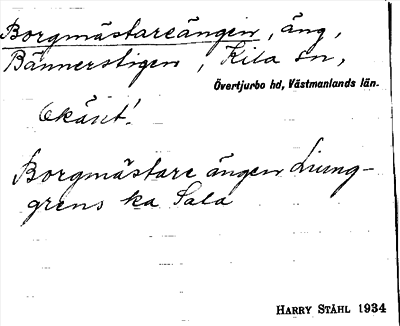 Borgmästareängen, äng,
Bännerstigen, Kila sn,
Övertjurbo hd, Västmanlands län.
Okänt!
Borgmästare ängen Ljung-
grens ka Sala
HARRY STÅHL 1934